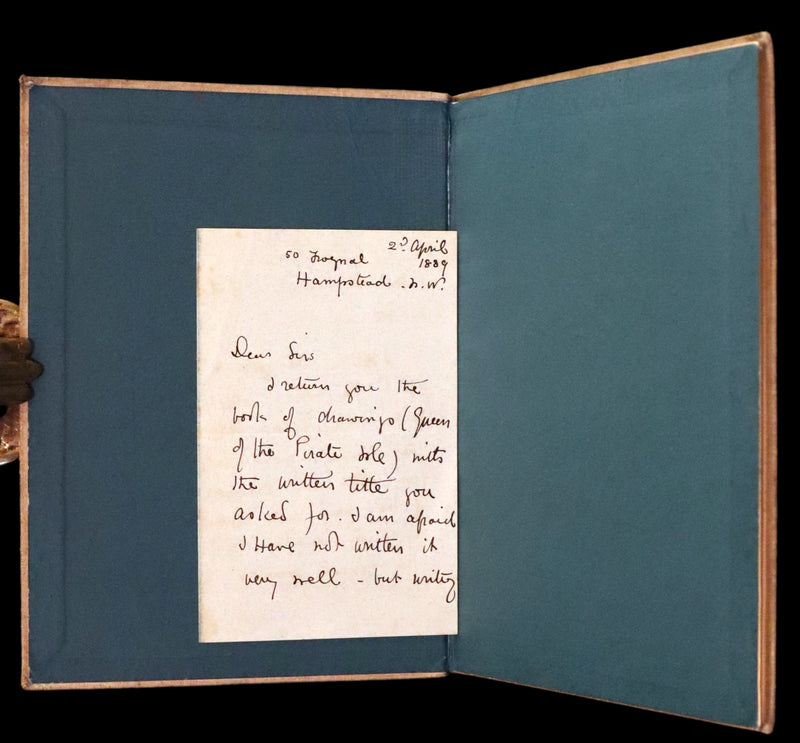 2d April
1889
50 Frognal
Hampstead. N.W.
Dear Sirs
I return you the
book of drawings (Queen
of the Pirate Isle) with
the written title you
asked for. I am afraid
I have not written it
very well - but writing